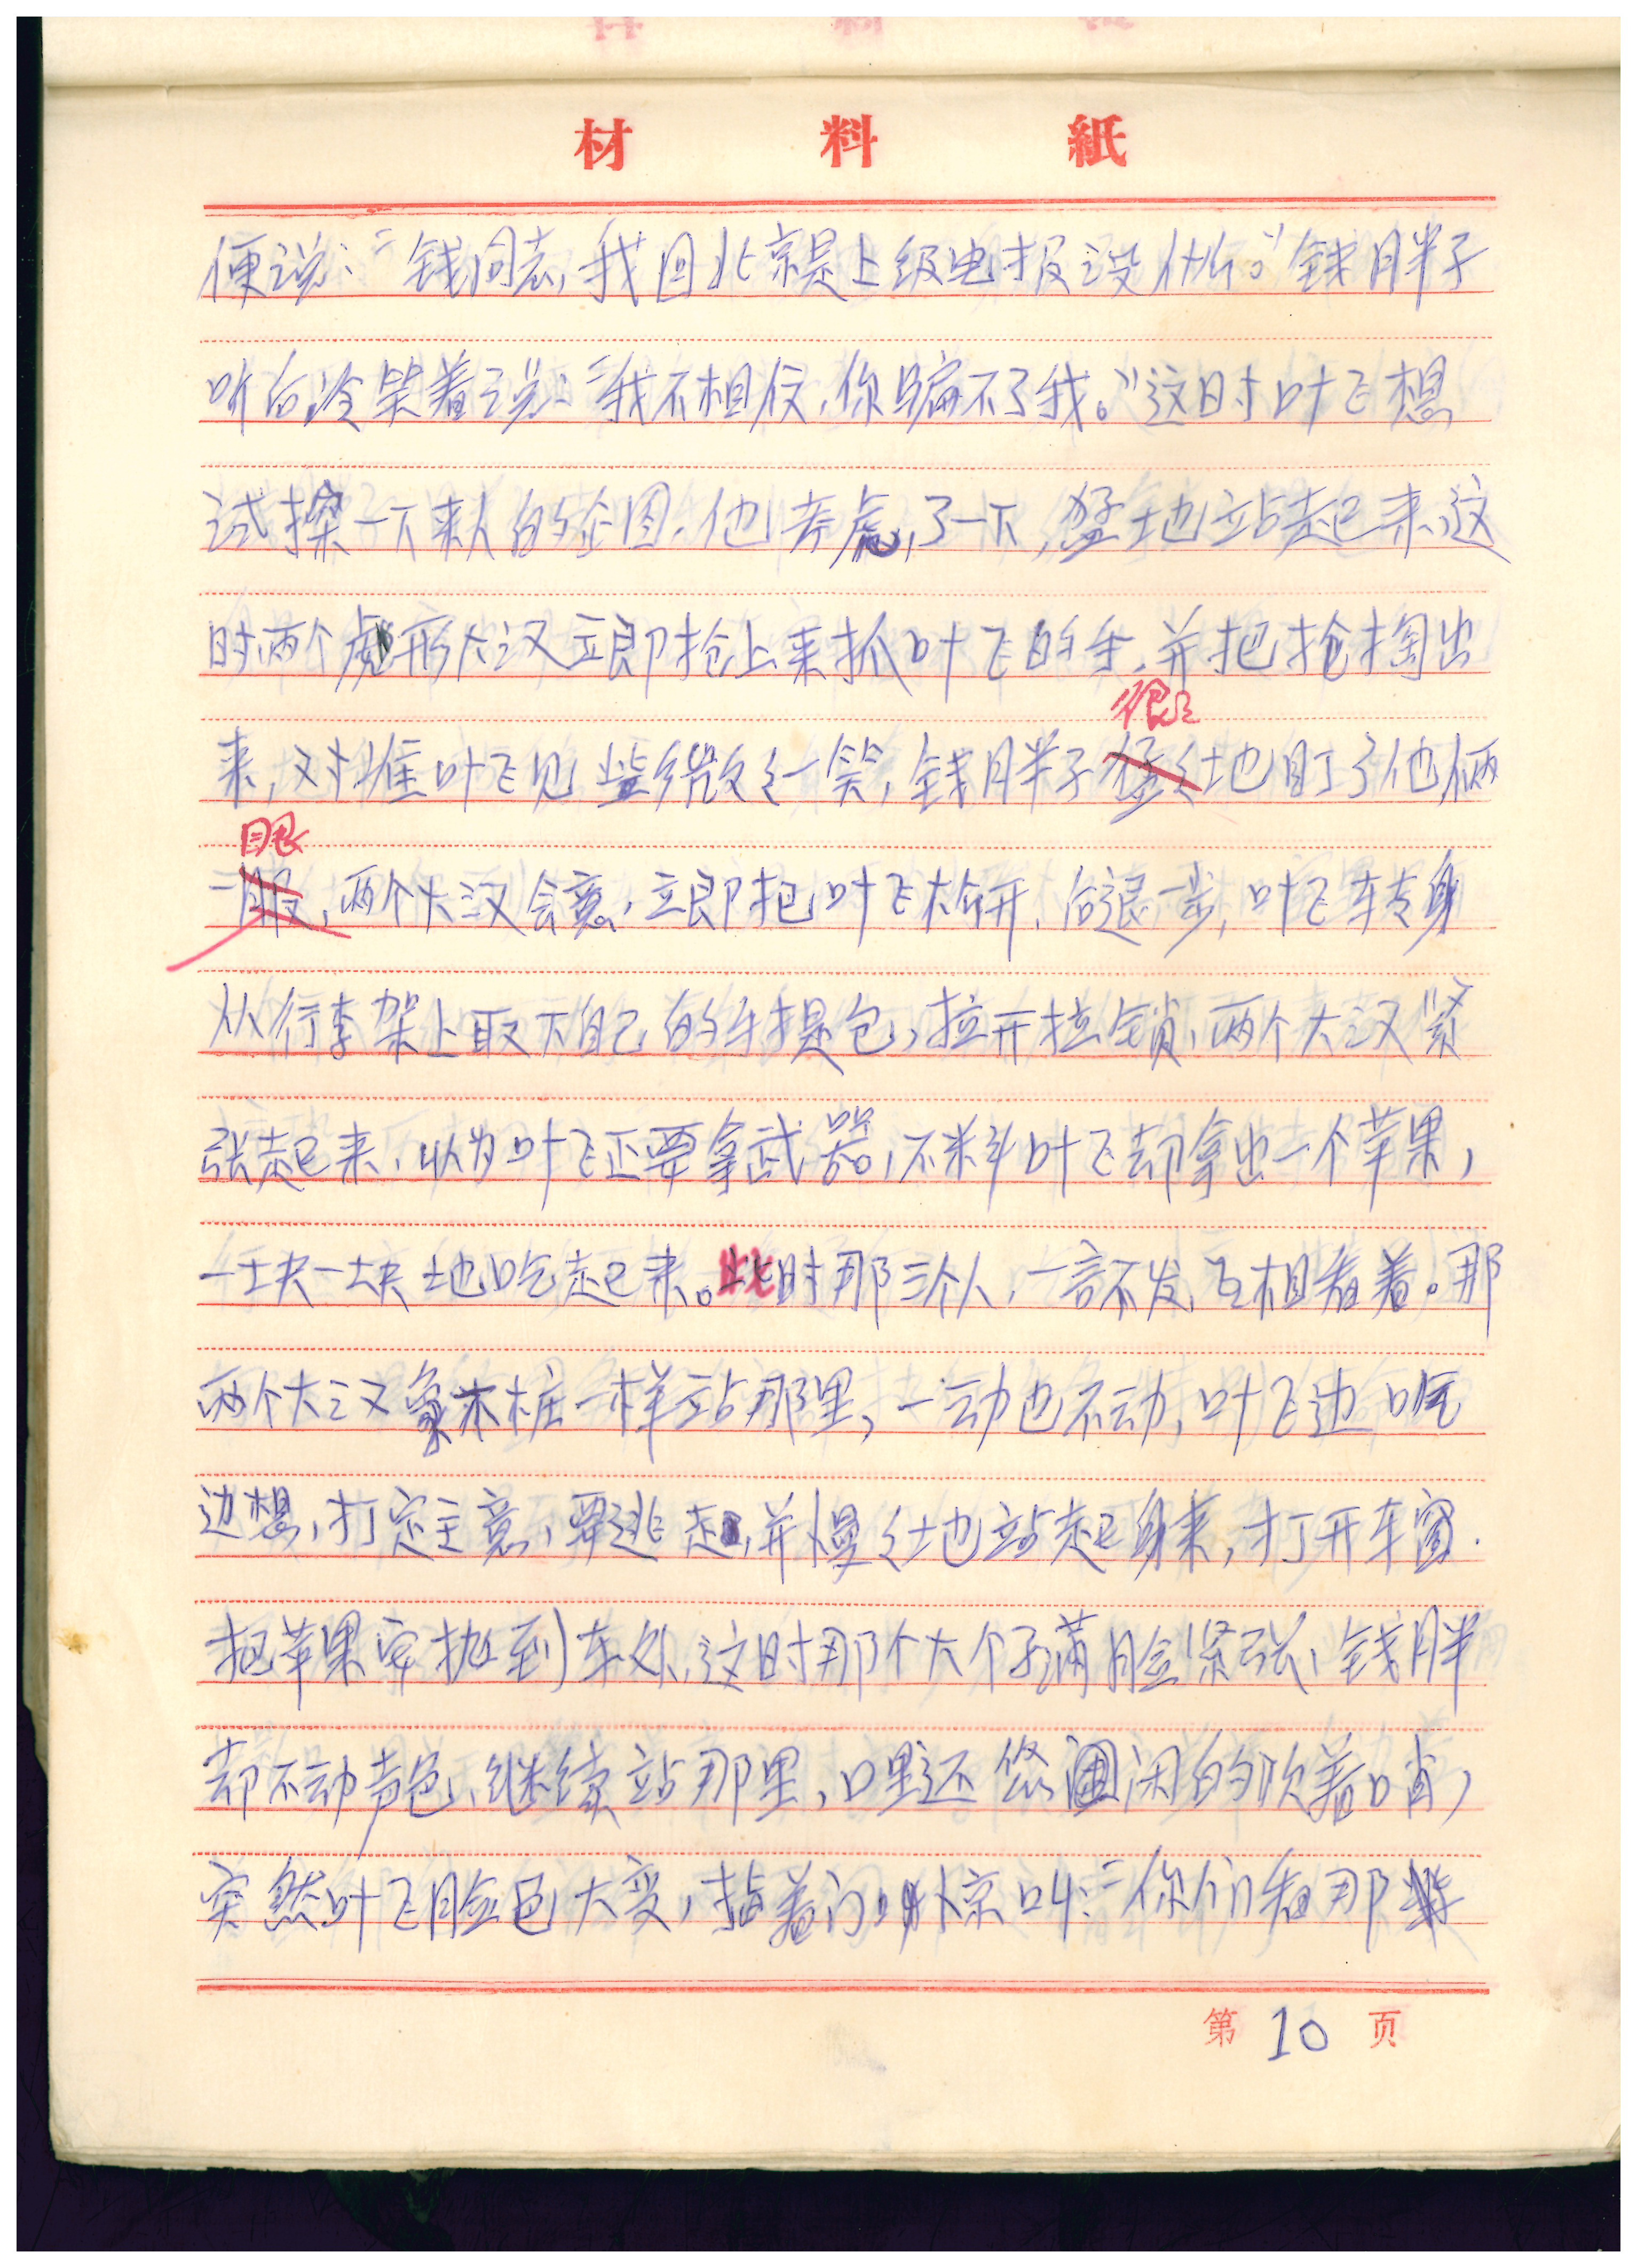 材料紙
便说:“钱同志,我回北京是上级电报没什么。”钱胖子
听后冷笑着说:“我不相信,你骗不了我。”这时叶飞想
试探一下来人的企图,他考虑了一下,猛地站起来,这
时两个彪形大汉立即抢上来抓叶飞的手,并把抢掏出
来,对准叶飞见此微々一笑,钱胖子
狠々
地盯了他俩
眼
一,两个大汉会意,立即把叶飞松开,后退一步,叶飞转身
从行李架上取下自己的手提包,拉开拉锁,两个大汉紧
张起来,以为叶飞还要拿武器,不料叶飞却拿出一个苹果,
一块一块地吃起来。此时那三个人,一言不发,互相看着。那
两个大汉象木桩一样站那里,一动也不动,叶飞边吃
边想,打定主意,要逃走,并慢々地站起身来,打开车窗.
把苹果抛到车外,这时那个大个子满脸紧张,钱胖
却不动声色,继续站那里,口里还悠闲的吹着哨,
突然叶飞脸色大变,指着门外惊叫:“你们看那
第10页